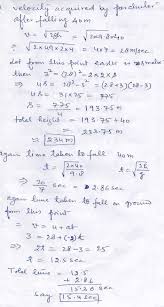 velocity acquired by parchuter
after falling 40m
u = √2gh = √2×9.8×40
= √2×4.9×2×40 = 4×7 = 28 m/sec
then 3² = (28)² - 2×2×s
4s = 28² - 3² = (28+3)(28-3)
4s = 31×25 = 775
s = 775/4 = 193.75 m
total height = 193.75 + 40
= 233.75 m
≈ 234m
again time taken to fall 40m
t = √2×40/9.8
⇒ 20/7 sec = 2.86 sec
again time taken to fall on ground
from this point
v = u + at
3 = 28 + (-2)t
⇒ 2t = 28 - 3 = 25
t = 12.5 sec
Total time = 12.5
+ 2.86
15.36 sec
say 15.4 sec